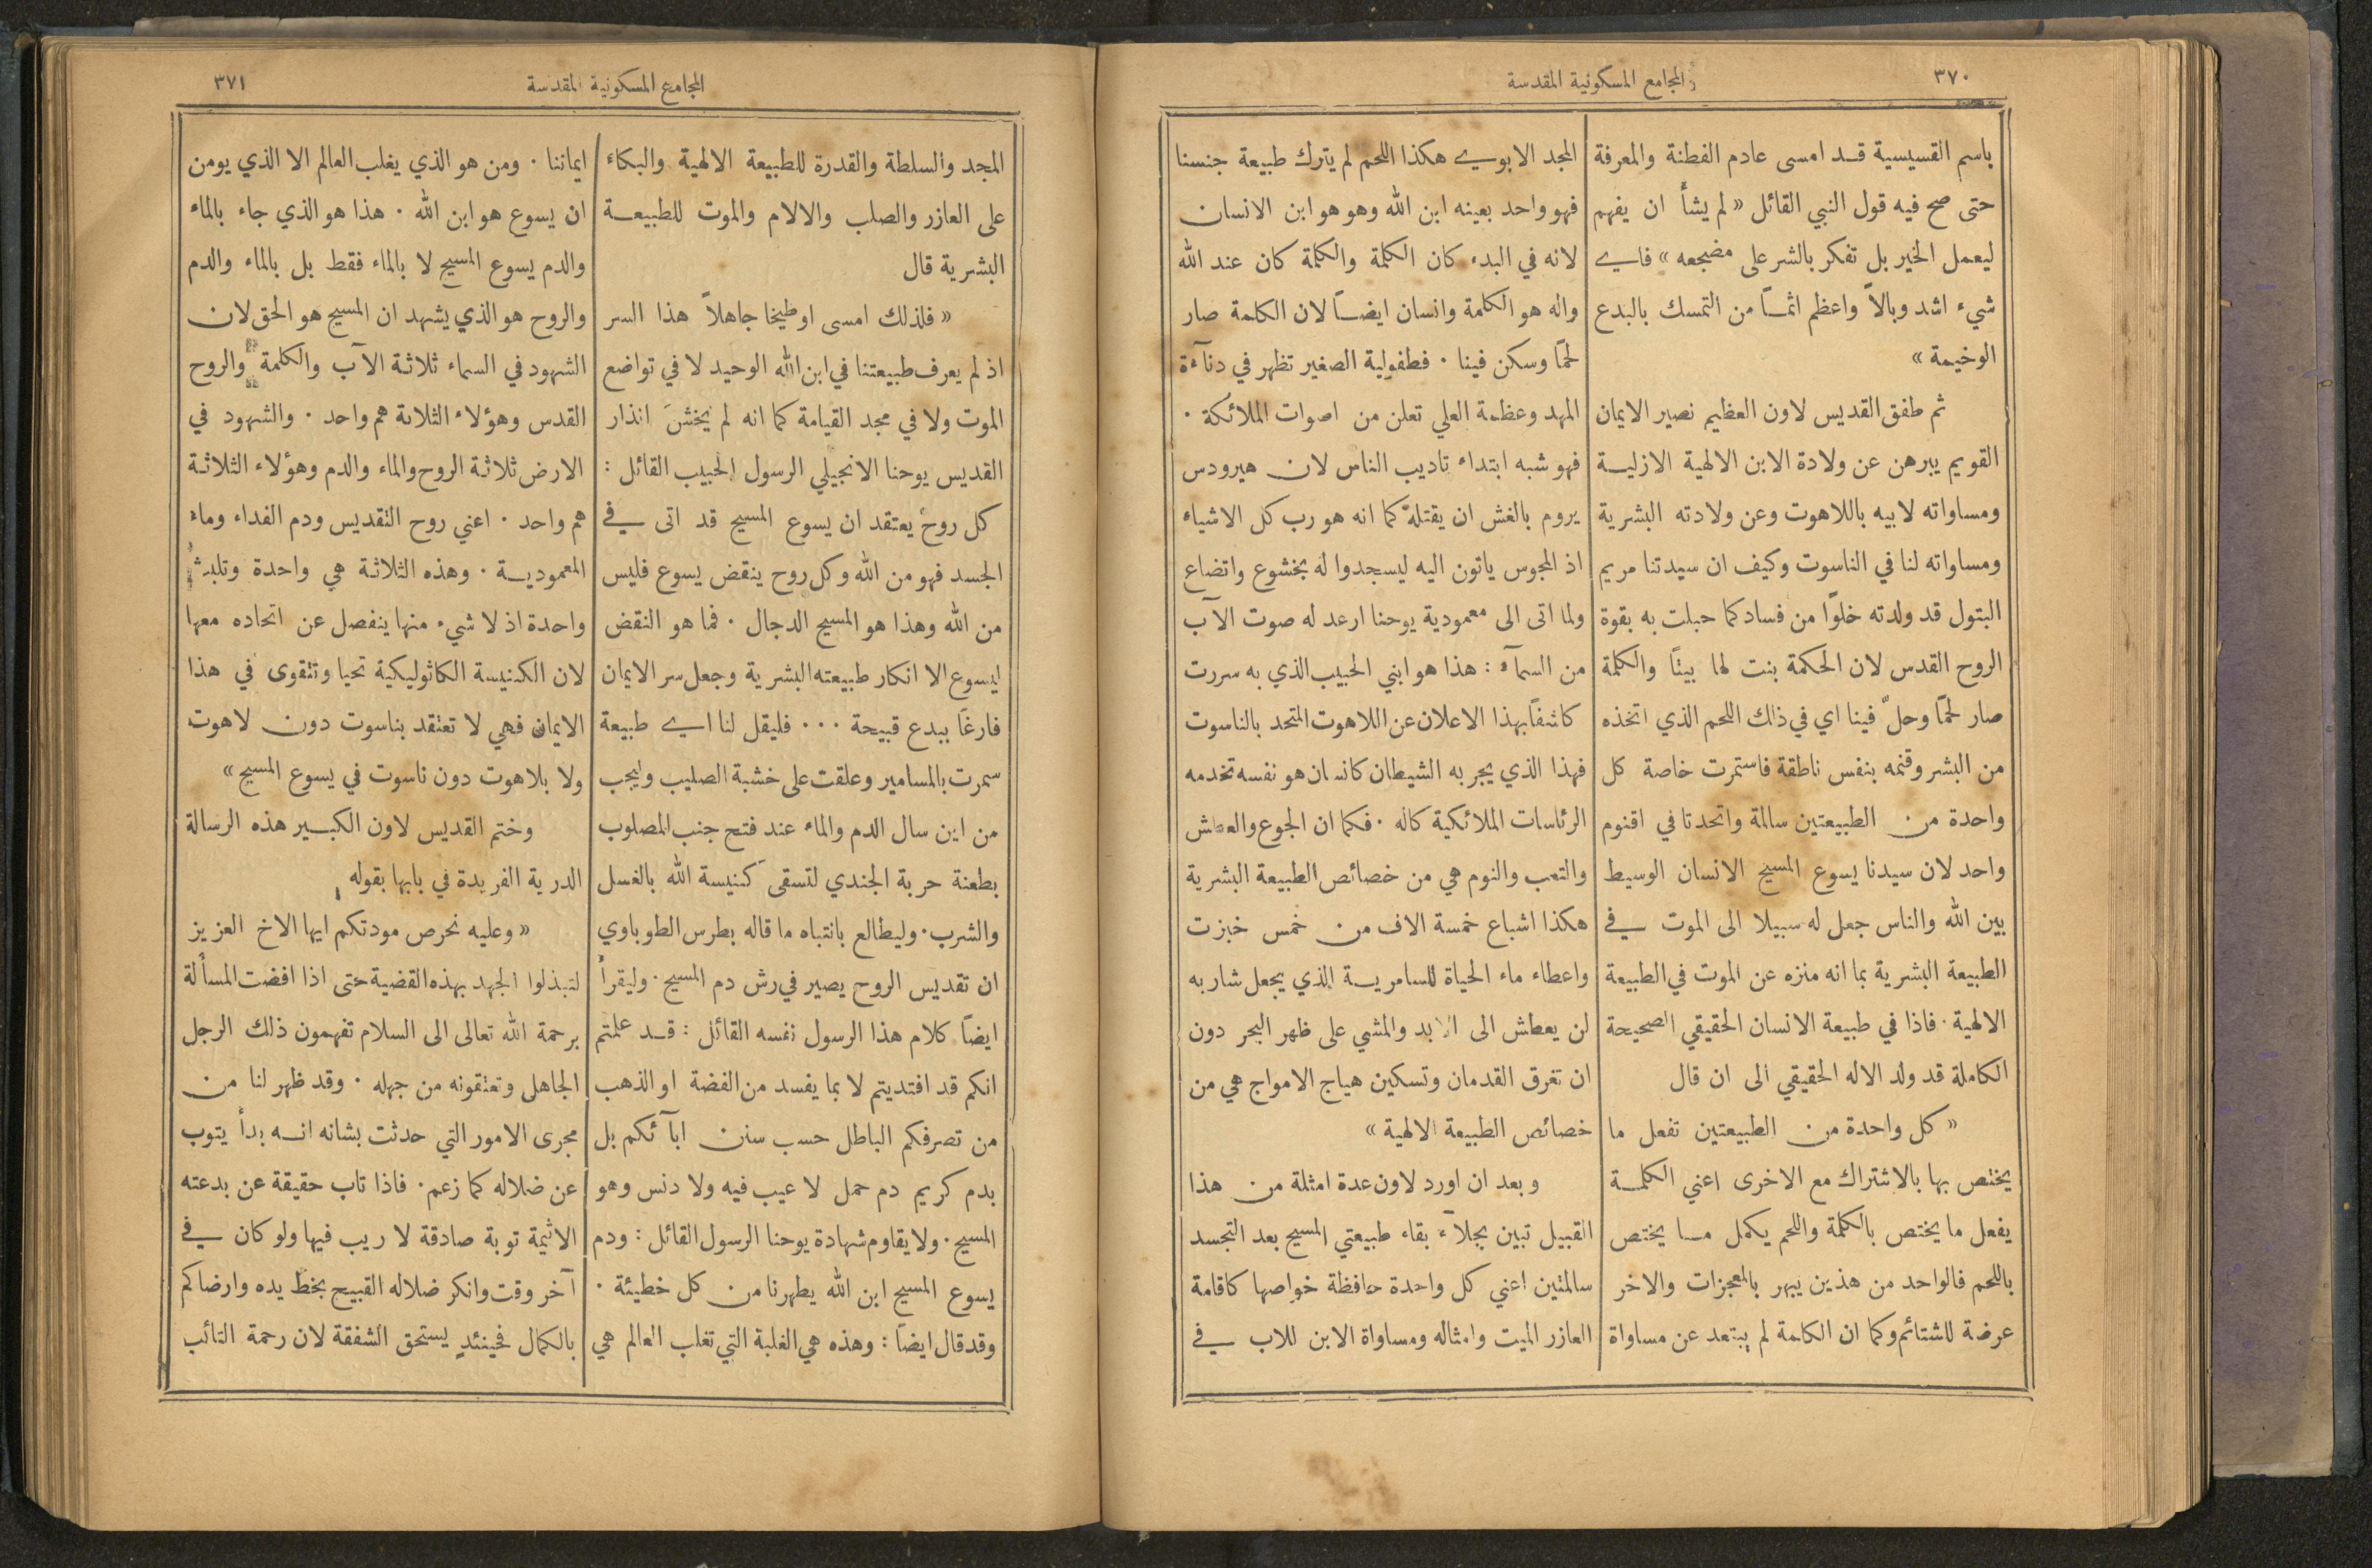 ٣٧٠
المجامع المسكونية المقدسة
باسم القسيسية قد امسى عادم الفطنة والمعرفة
حتى صح فيه قول النبي القائل « لم يشأ ان يفهم
ليعمل الخير بل تفكر بالشر على مضجعه » فاي
شيء اشد وبالاً واعظم اثمًا من التمسك بالبدع
الوخيمة »
ثم طفق القديس لاون العظيم نصير الايمان
القويم يبرهن عن ولادة الابن الالهية الازلية
ومساواته لابيه باللاهوت وعن ولادته البشرية
ومساواته لنا في الناسوت وكيف ان سيدتنا مريم
البتول قد ولدته خلوًا من فساد كما حبلت به بقوة
الروح القدس لان الحكمة بنت لها بيتًا والكلمة
صار لحمًا وحلّ فينا اي في ذلك اللحم الذي اتخذه
من البشر وقنمه بنفس ناطقة فاستمرت خاصة كل
واحدة من الطبيعتين سالمة واتحدتا في اقنوم
واحد لان سيدنا يسوع المسيح الانسان الوسيط
بين الله والناس جعل له سبيلا الى الموت في
الطبيعة البشرية بما انه منزه عن الموت في الطبيعة
الالهية . فاذا في طبيعة الانسان الحقيقي الصحيحة
الكاملة قد ولد الاله الحقيقي الى ان قال
« كل واحدة من الطبيعتين تفعل ما
يختص بها بالاشتراك مع الاخرى اعني الكلمة
يفعل ما يختص بالكلمة واللحم يكمل ما يختص
باللحم فالواحد من هذين يبهر بالمعجزات والاخر
عرضة للشتائم وكما ان الكلمة لم يبتعد عن مساواة
المجد الابوي هكذا اللحم لم يترك طبيعة جنسنا
فهو واحد بعينه ابن الله وهو هو ابن الانسان
لانه في البدء كان الكلمة والكلمة كان عند الله
واله هو الكلمة وانسان ايضًا لان الكلمة صار
لحمًا وسكن فينا . فطفولية الصغير تظهر في دنآءة
المهد وعظمة العلي تعلن من اصوات الملائكة .
فهو شبه ابتداء تاديب الناس لان هيرودس
يروم بالغش ان يقتله كما انه هو رب كل الاشياء
اذ المجوس ياتون اليه ليسجدوا له بخشوع واتضاع
ولما اتى الى معمودية يوحنا ارعد له صوت الآب
من السمآء : هذا هو ابني الحبيب الذي به سررت
كاشفًا بهذا الاعلان عن اللاهوت المتحد بالناسوت
فهذا الذي يجربه الشيطان كانسان هو نفسه تخدمه
الرئاسات الملائكية كاله . فكما ان الجوع والعطش
والتعب والنوم هي من خصائص الطبيعة البشرية
هكذا اشباع خمسة الاف من خمس خبزت
واعطاء ماء الحياة للسامرية الذي يجعل شاربه
لن يعطش الى الابد والمشي على ظهر البحر دون
ان تغرق القدمان وتسكين هياج الامواج هي من
خصائص الطبيعة الالهية »
وبعد ان اورد لاون عدة امثلة من هذا
القبيل تبين بجلآء بقاء طبيعتي المسيح بعد التجسد
سالمتين اعني كل واحدة حافظة خواصها كاقامة
العازر الميت وامثاله ومساواة الابن للاب في
المجامع المسكونية المقدسة
٣٧١
المجد والسلطة والقدرة للطبيعة الالهية والبكاء
على العازر والصلب والالام والموت للطبيعة
البشرية قال
« فلذلك امسى اوطيخا جاهلاً هذا السر
اذ لم يعرف طبيعتنا في ابن الله الوحيد لا في تواضع
الموت ولا في مجد القيامة كما انه لم يخش انذار
القديس يوحنا الانجيلي الرسول الحبيب القائل :
كل روح يعتقد ان يسوع المسيح قد اتى في
الجسد فهو من الله وكل روح ينقض يسوع فليس
من الله وهذا هو المسيح الدجال . فما هو النقض
ليسوع الا انكار طبيعته البشرية وجعل سر الايمان
فارغًا ببدع قبيحة ... فليقل لنا اي طبيعة
سمرت بالمسامير وعلقت على خشبة الصليب وليجب
من اين سال الدم والماء عند فتح جنب المصلوب
بطعنة حربة الجندي لتسقى كنيسة الله بالغسل
والشرب . وليطالع بانتباه ما قاله بطرس الطوباوي
ان تقديس الروح يصير في رش دم المسيح . وليقرأ
ايضًا كلام هذا الرسول نفسه القائل : قد علمتم
انكم قد افتديتم لا بما يفسد من الفضة او الذهب
من تصرفكم الباطل حسب سنن ابآئكم بل
بدم كريم دم حمل لا عيب فيه ولا دنس وهو
المسيح . ولا يقاوم شهادة يوحنا الرسول القائل : ودم
يسوع المسيح ابن الله يطهرنا من كل خطيئة .
وقد قال ايضًا : وهذه هي الغلبة التي تغلب العالم هي
ايماننا . ومن هو الذي يغلب العالم الا الذي يومن
ان يسوع هو ابن الله . هذا هو الذي جاء بالماء
والدم يسوع المسيح لا بالماء فقط بل بالماء والدم
والروح هو الذي يشهد ان المسيح هو الحق لان
الشهود في السماء ثلاثة الآب والكلمة والروح
القدس وهؤلاء الثلاثة هم واحد . والشهود في
الارض ثلاثة الروح والماء والدم وهؤلاء الثلاثة
هم واحد . اعني روح التقديس ودم الفداء وماء
المعمودية . وهذه الثلاثة هي واحدة وتلبث
واحدة اذ لا شيء منها ينفصل عن اتحاده معها
لان الكنيسة الكاثوليكية تحيا وتتقوى في هذا
الايمان فهي لا تعتقد بناسوت دون لاهوت
ولا بلاهوت دون ناسوت في يسوع المسيح »
وختم القديس لاون الكبير هذه الرسالة
الدرية الفريدة في بابها بقوله
« وعليه نحرص مودتكم ايها الاخ العزيز
لتبذلوا الجهد بهذه القضية حتى اذا افضت المسألة
برحمة الله تعالى الى السلام تفهمون ذلك الرجل
الجاهل وتعتقونه من جهله . وقد ظهر لنا من
مجرى الامور التي حدثت بشانه انه بدأ يتوب
عن ضلاله كما زعم . فاذا تاب حقيقة عن بدعته
الاثيمة توبة صادقة لا ريب فيها ولو كان في
آخر وقت وانكر ضلاله القبيح بخط يده وارضاكم
بالكمال فحينئذٍ يستحق الشفقة لان رحمة التائب